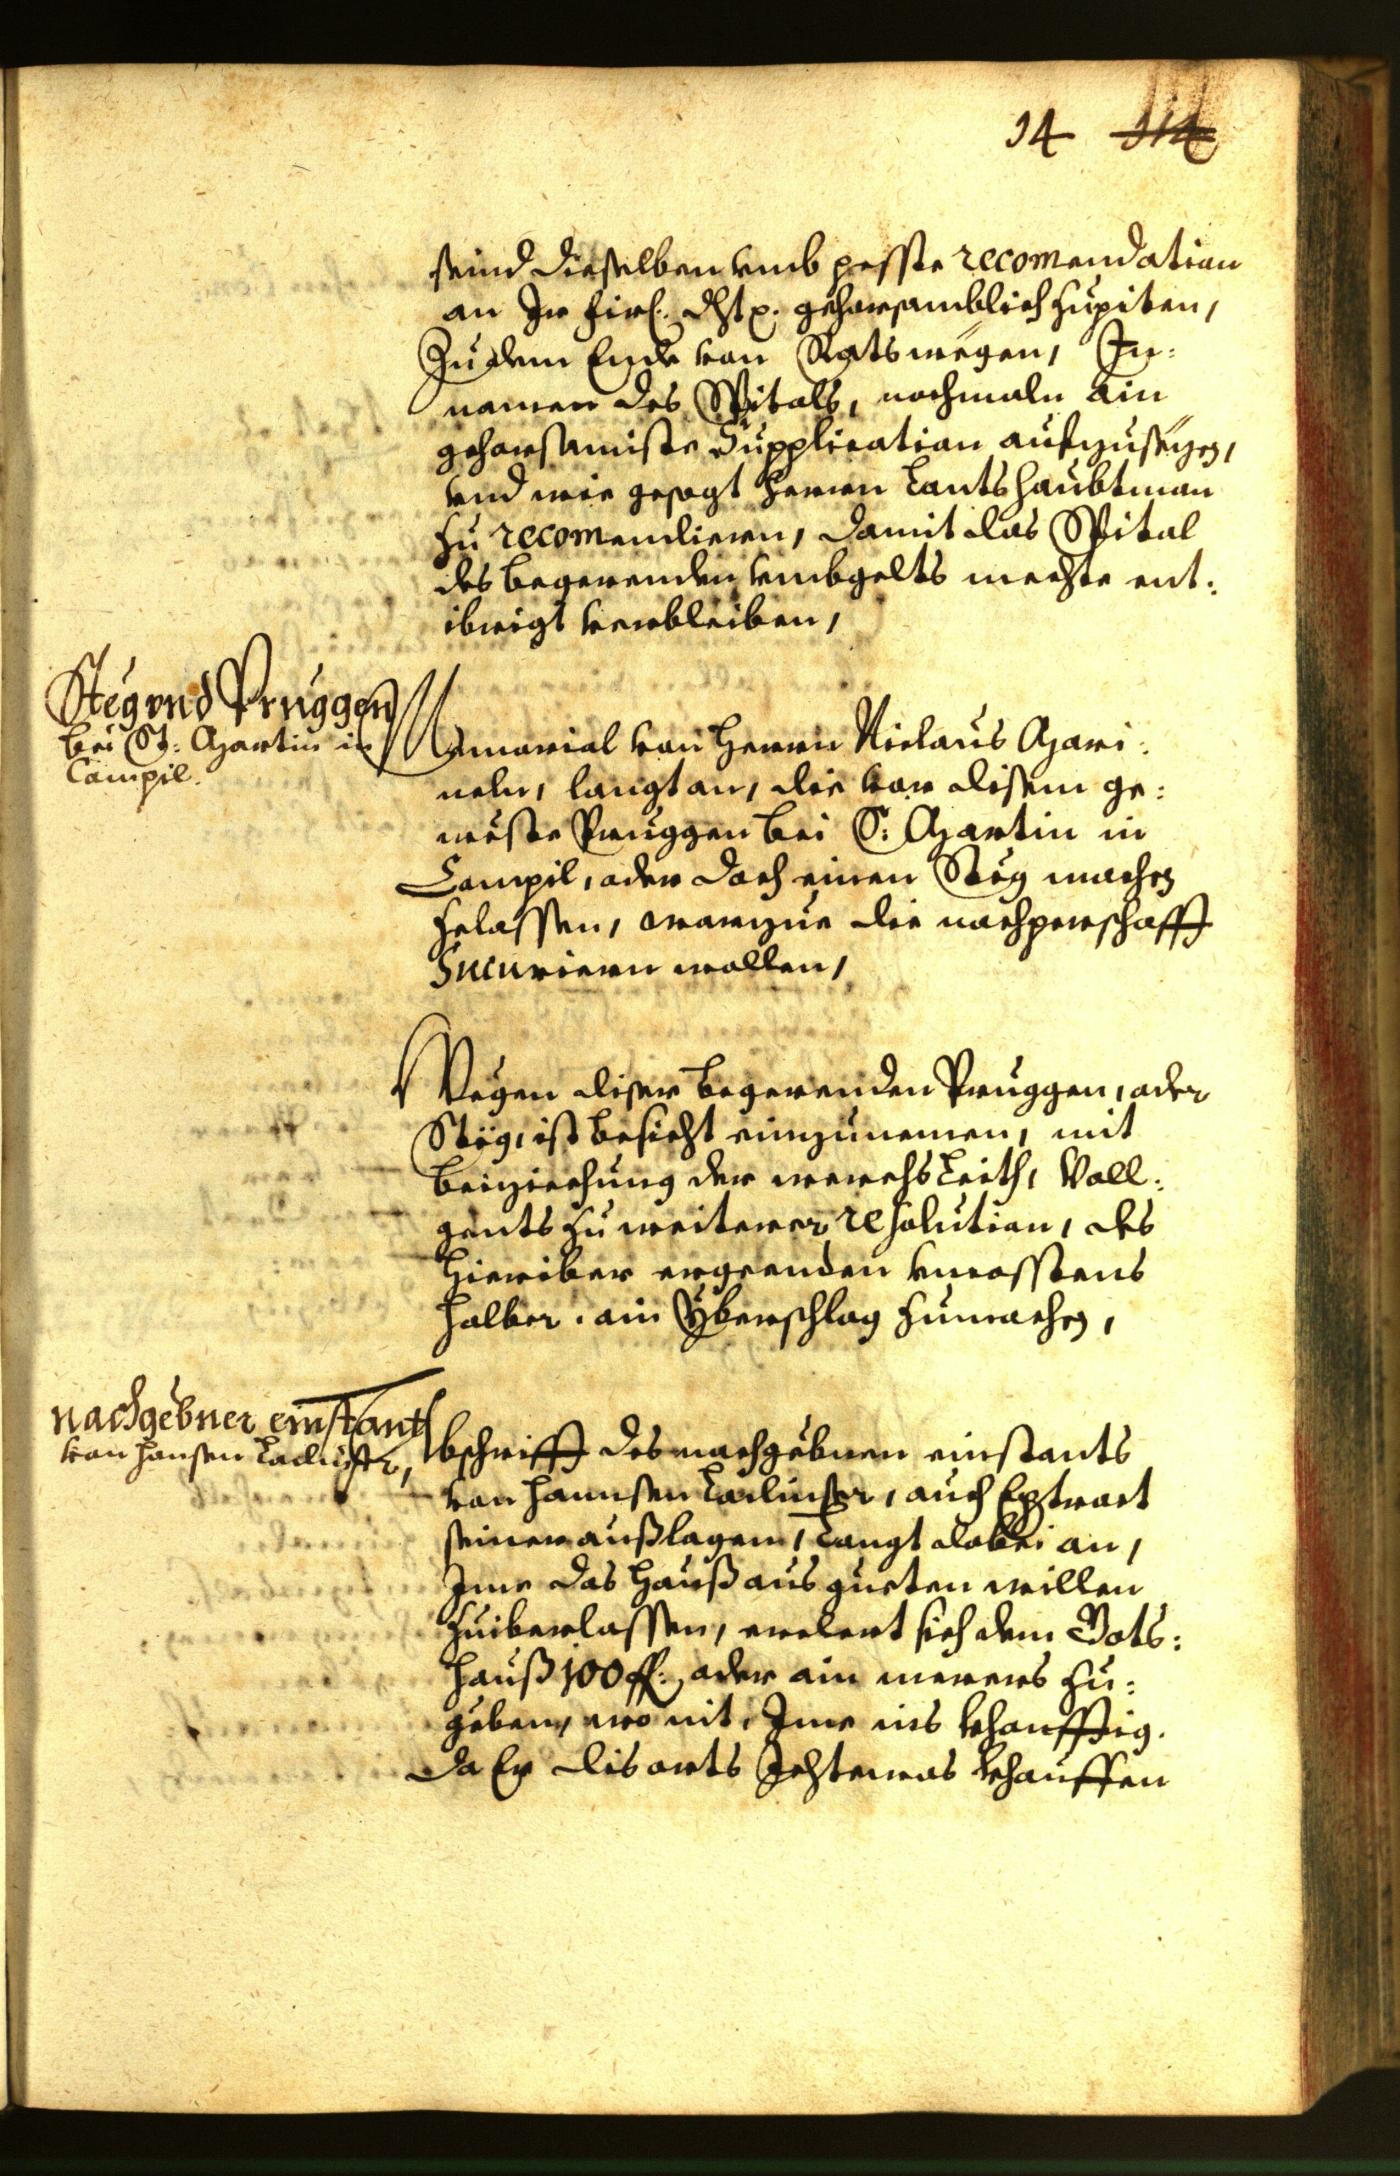 14 114
seind dieselben vmb pesste recomendation
an Ir firl: dht p. gehorsamblich zupiten,
Zu dem Ende von Rats wegen, In:
namen des Spitals, nochmaln ain
gehorsamiste Supplication aufzusezen,
vnd wie gesagt herrn Lantshaubtman
zu recomendiern, damit das Spital
des begerenden vmbgelts mechte ent:
ibrigt verbleiben,
Steg vnd Pruggen
bei St: Martin in
Campil.
Memorial von Herrn Niclaus Mari:
neln, langt an, die vor disem ge:
weste Pruggen bei S: Martin in
Campil, oder doch einen Steg machen
zelassen, warzue die nachperschafft
Sucuriern wollen,
Wegen diser begerenden Pruggen, oder
Steg, ist besicht einzunemen, mit
beiziechung der werchsleith, Voll:
gents zu weiterer resolution, des
hieriber ergeenden vncosstens
halber. ain Yberschlag zumachen,
nachgebner einstant
von Hansen Ladurser,
Abschrifft des nachgebnen einstants
von Hannsen Ladurser, auch Extract
seiner außlagen, Langt dabei an,
Ime das Hauß aus gueten willen
zuiberlassen, ercleert sich dem Gots:
hauß 100 f: oder ain merers zu:
geben, wo nit, Ime ins khauffig.
da Er dis orts Ichtwas khauffen